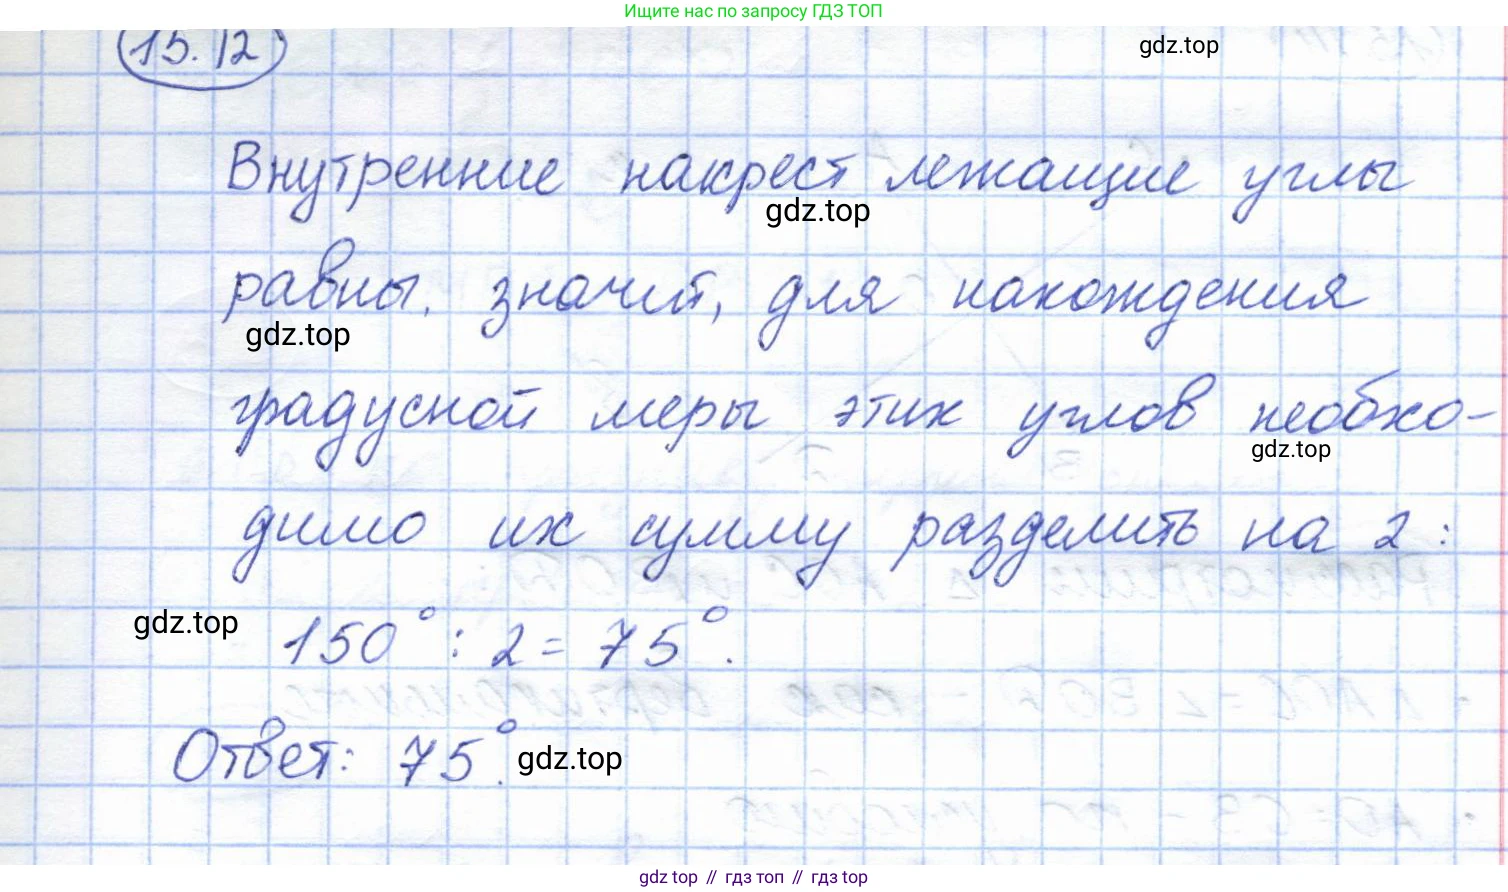 Ищите нас по запросу ГДЗ ТОП
15.12
gdz.top
Внутренние накрест лежащие углы
gdz.top
равны, значит, для нахождения
gdz.top
градусной меры этих углов необхо-
gdz.top
димо их сумму разделить на 2:
gdz.top
150° : 2 = 75°.
Ответ: 75°.
gdz.top
gdz top // гдз топ // гдз top